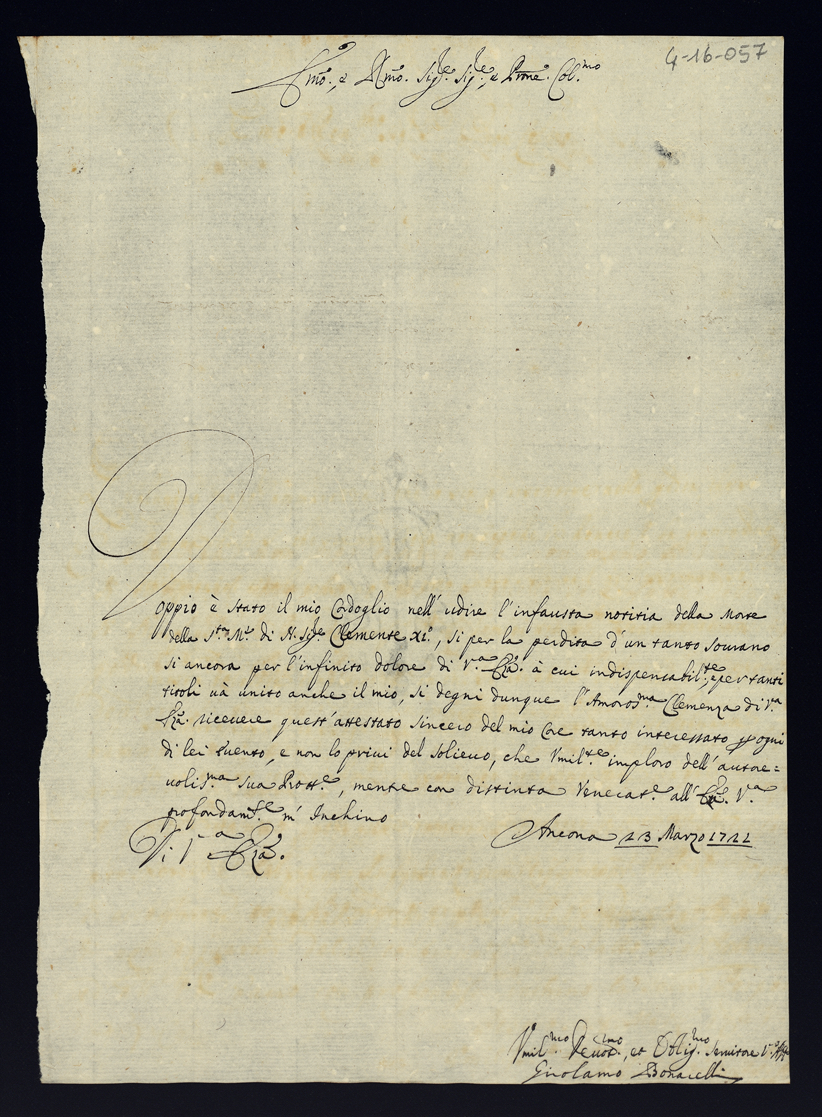 4-16-057
Emo., e Rmo. Sigre. Sigre., e Prone. Col.mo
Doppio è stato il mio Cordoglio nell' udire l'infausta notitia della Morte
della S.ta M.a di N. Sig.re Clemente XI.o, si per la perdita d'un tanto Sourano
si ancora per l'infinito dolore di V.a Eza. à cui indispensabil.te, e per tanti
titoli uà unito anche il mio, si degni dunque l'Amoros.ma Clemenza di V.a
Eza. riceuere quest'attestato sincero del mio Core tanto interessato p ogni
di lei Euento, e non lo priui del solieuo, che Vmil.te imploro dell'autore=
uolis.ma sua Prott.e, mentre con distinta Venerat.e all'Eza. V.a
profondam.te m'Inchino
Di V.a Eza.
Ancona 23 Marzo 1721
Vmil.mo Deuot.mo, et Oblig.mo Seruitore
Girolamo Bonarelli